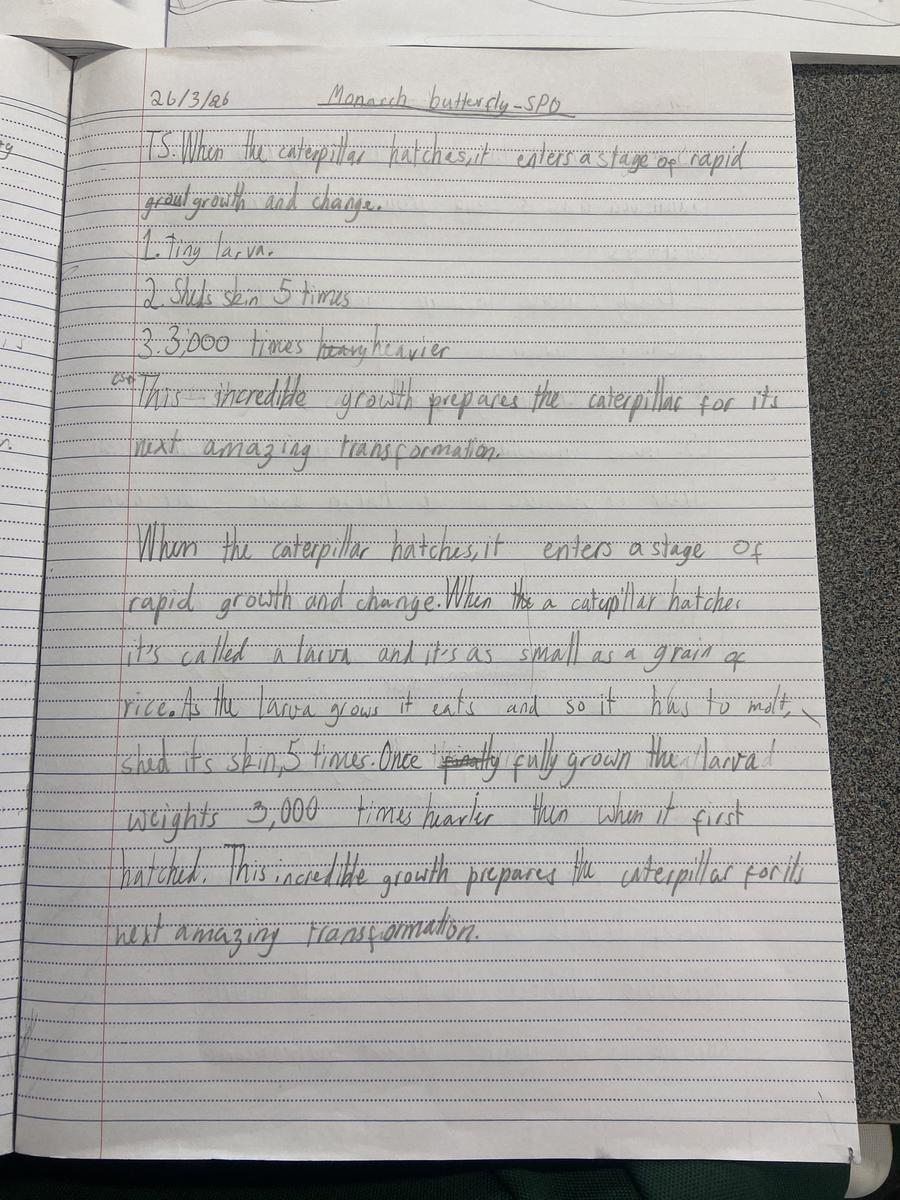 26/3/26 Monarch butterfly-SPO
T.S. When the caterpillar hatches, it enters a stage of rapid
groul growth and change.
1. Tiny larva.
2. Sheds skin 5 times
3. 3,000 times heavy heavier
CS This incredible growth prepares the caterpillar for its
next amazing transformation.
When the caterpillar hatches, it enters a stage of
rapid growth and change. When the a caterpillar hatches
it's called a larva and it's as small as a grain of
rice. As the larva grows it eats and so it has to molt,
shed its skin, 5 times. Once finally fully grown the larva
weights 3,000 times hearier then when it first
hatched. This incredible growth prepares the caterpillar for its
next amazing transformation.